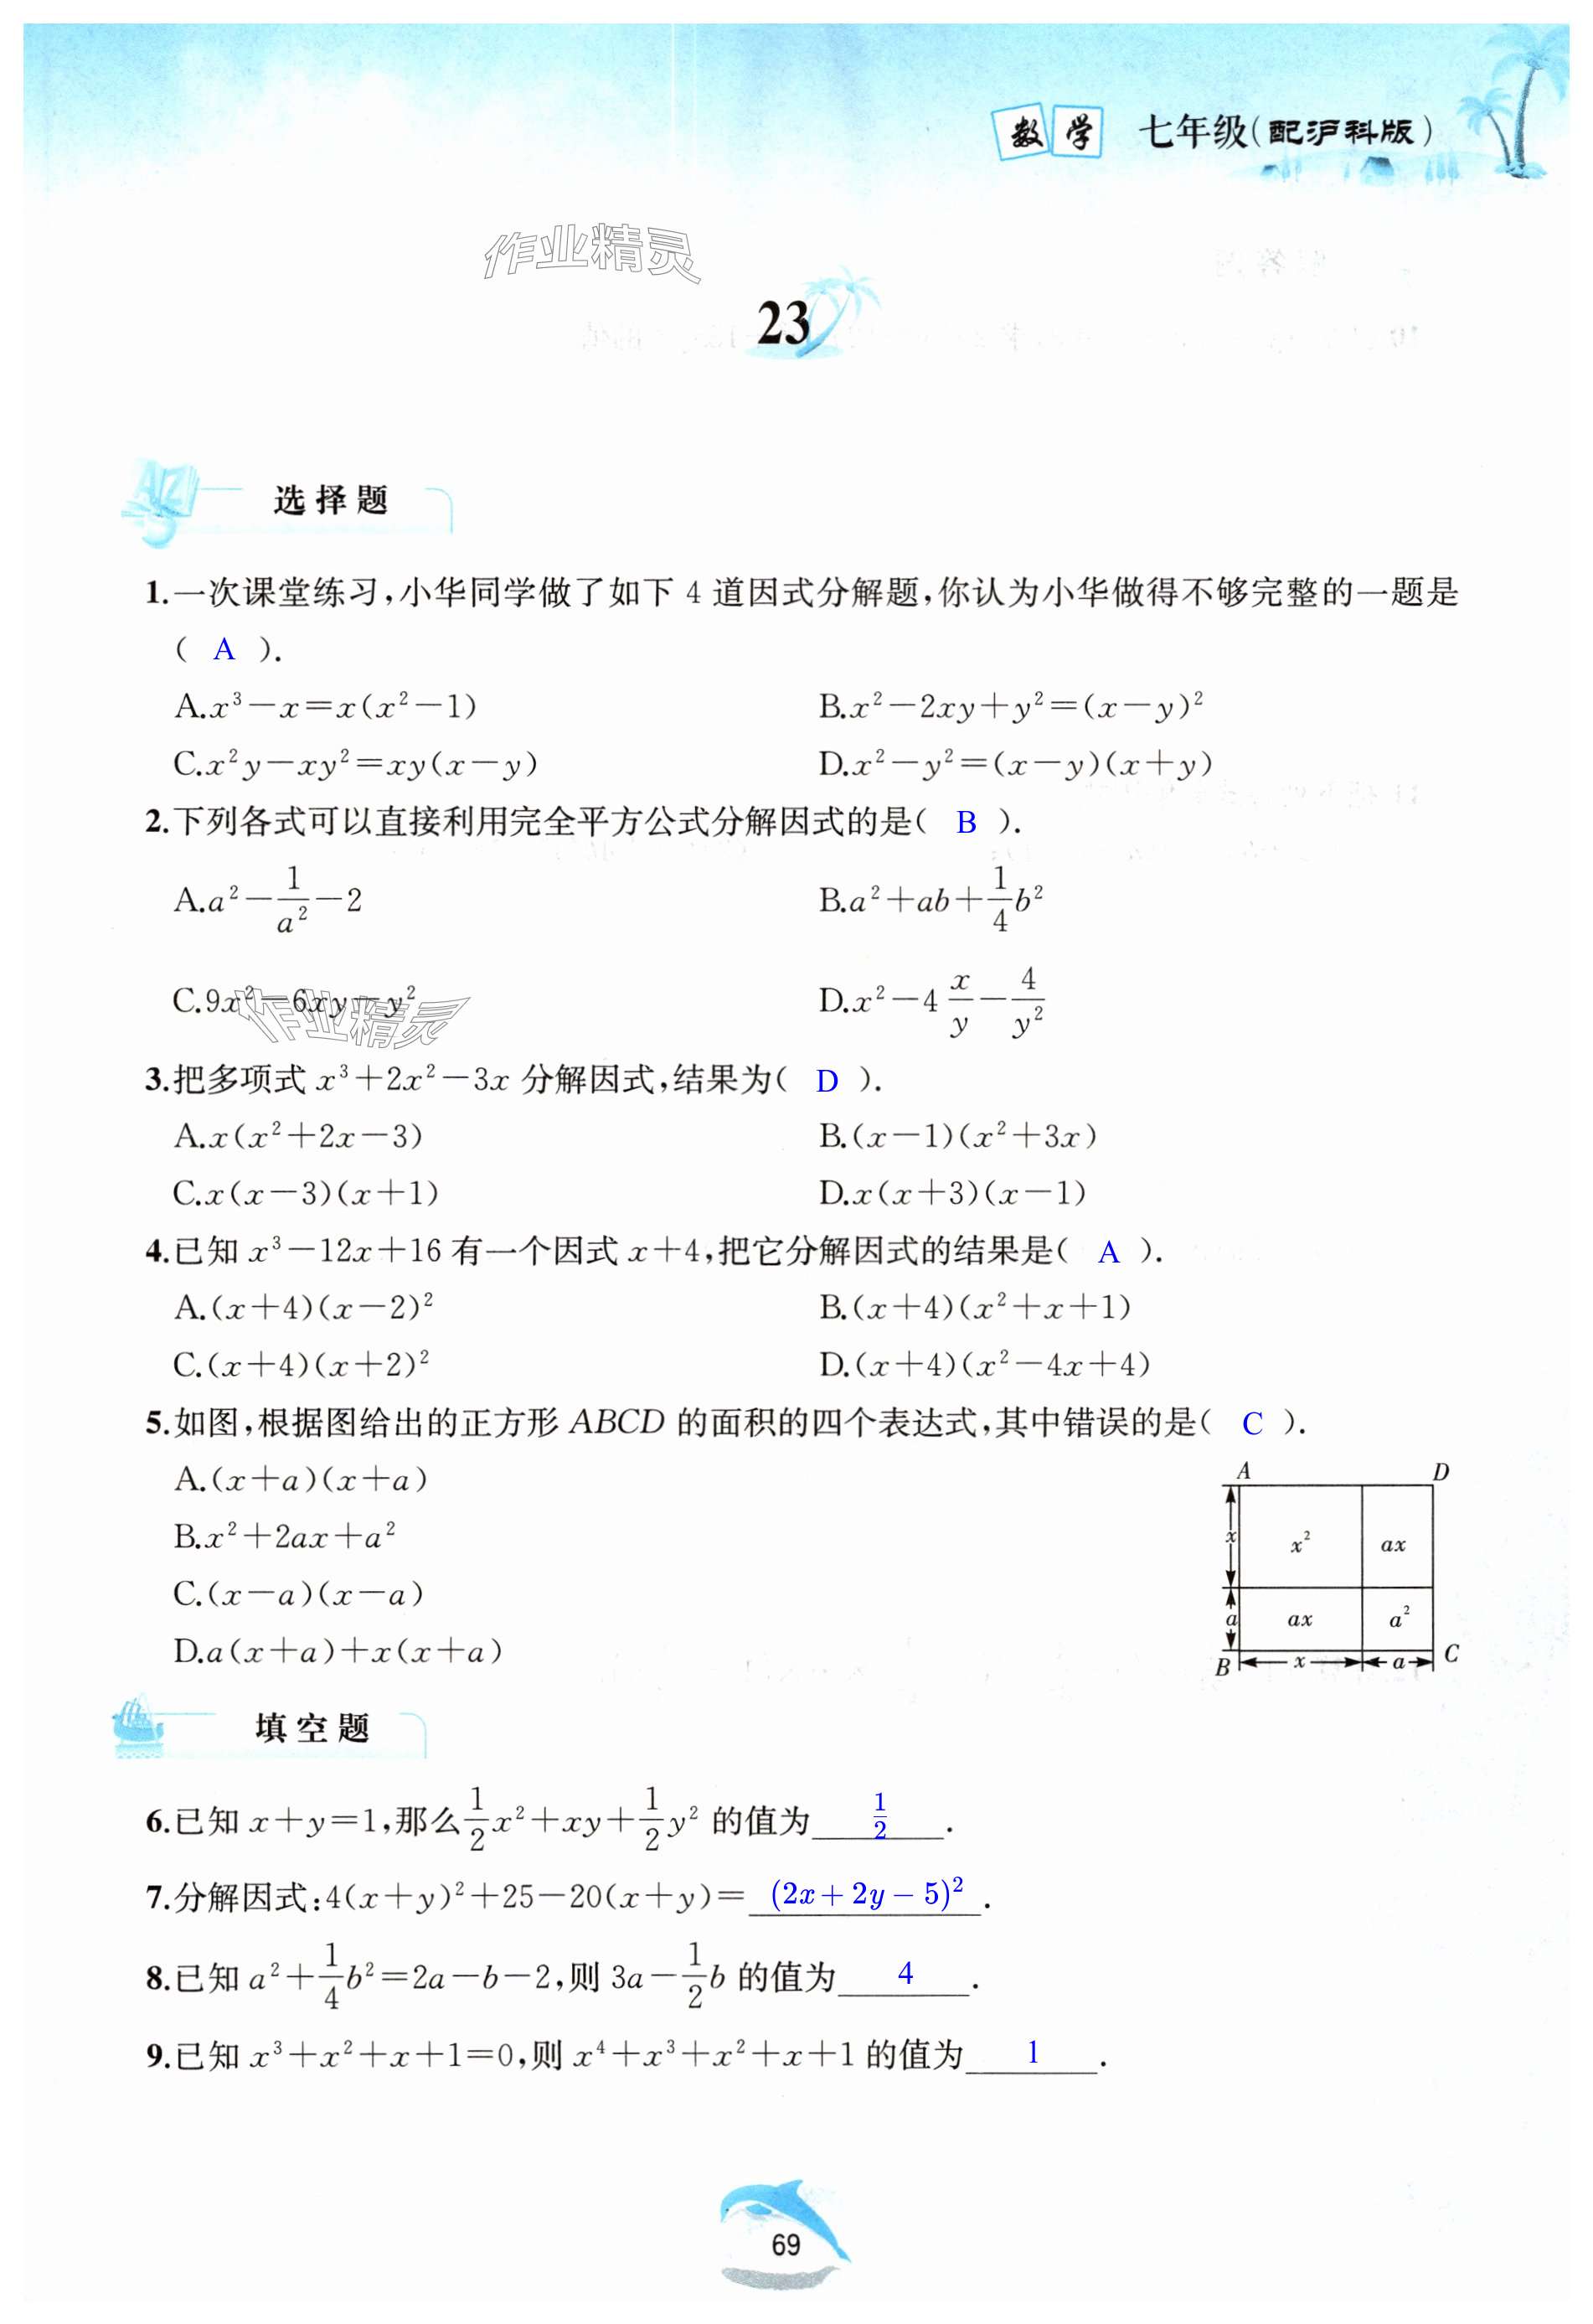 数学 七年级(配沪科版)
作业精灵
23
选择题
1.一次课堂练习,小华同学做了如下 4 道因式分解题,你认为小华做得不够完整的一题是
( A ).
A.x³-x=x(x²-1) B.x²-2xy+y²=(x-y)²
C.x²y-xy²=xy(x-y) D.x²-y²=(x-y)(x+y)
2.下列各式可以直接利用完全平方公式分解因式的是( B ).
A.a²-1/a²-2 B.a²+ab+1/4b²
C.9x²-6xy-y² D.x²-4x/y-4/y²
作业精灵
3.把多项式 x³+2x²-3x 分解因式,结果为( D ).
A.x(x²+2x-3) B.(x-1)(x²+3x)
C.x(x-3)(x+1) D.x(x+3)(x-1)
4.已知 x³-12x+16 有一个因式 x+4,把它分解因式的结果是( A ).
A.(x+4)(x-2)² B.(x+4)(x²+x+1)
C.(x+4)(x+2)² D.(x+4)(x²-4x+4)
5.如图,根据图给出的正方形 ABCD 的面积的四个表达式,其中错误的是( C ).
A.(x+a)(x+a)
B.x²+2ax+a²
C.(x-a)(x-a)
D.a(x+a)+x(x+a)
A D
x x² ax
a ax a²
B x a C
填空题
6.已知 x+y=1,那么1/2x²+xy+1/2y² 的值为 1/2 .
7.分解因式:4(x+y)²+25-20(x+y)= (2x+2y-5)² .
8.已知 a²+1/4b²=2a-b-2,则 3a-1/2b 的值为 4 .
9.已知 x³+x²+x+1=0,则 x⁴+x³+x²+x+1 的值为 1 .
69